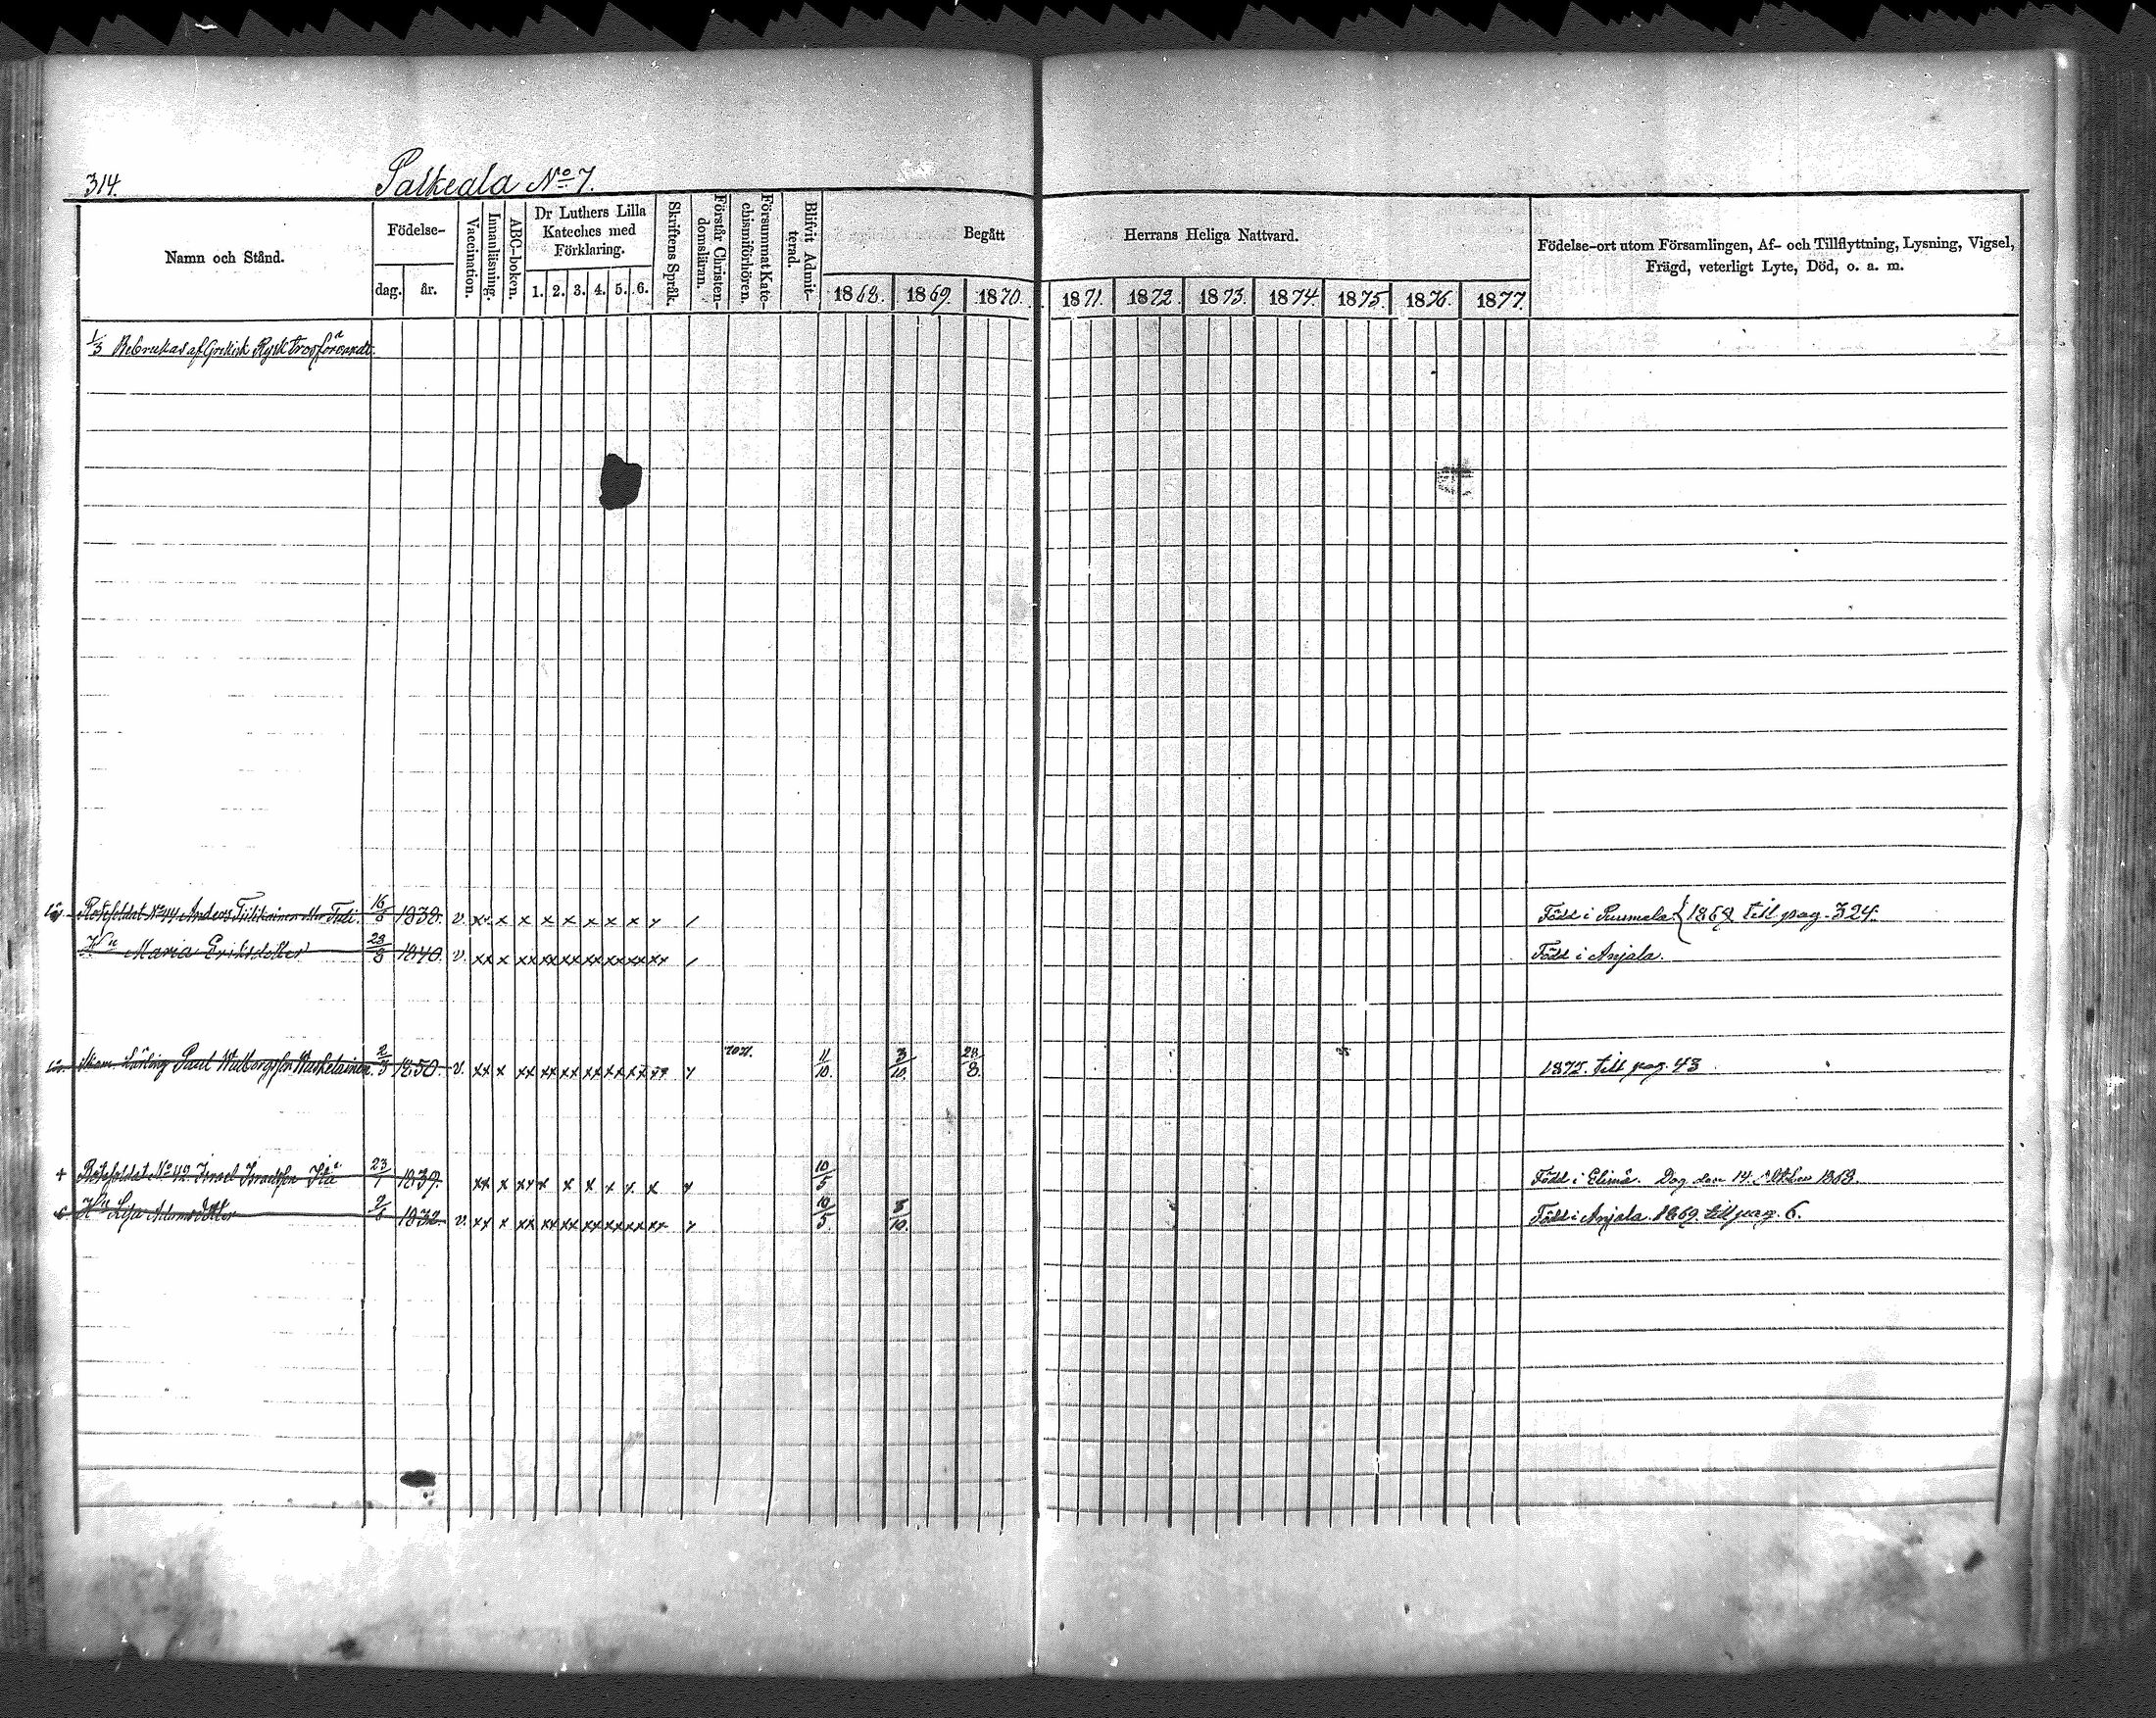 314. Valkeala No 7.
Namn och Stånd.
Födelse-
dag. år.
Vaccination.
Innanläsning.
ABC-boken.
Dr Luthers Lilla
Kateches med
Förklaring.
1. 2. 3. 4. 5. 6.
Skriftens Språk.
Förstår Christen-
domsläran.
Försummat Kate-
chismiförhören.
Blifvit Admit-
terad.
Begått Herrans Heliga Nattvard.
1868. 1869. 1870. 1871. 1872. 1873. 1874. 1875. 1876. 1877.
Födelse-ort utom Församlingen, Af- och Tillflyttning, Lysning, Vigsel,
Frägd, veterligt Lyte, Död, o. a. m.
1/3 Bebrukas af Grekisk Rysk trosförvandt.
No 44 Anders 16 1838. v. x x x x x x x x x Född i 1868 till pag. 324.
Hu Maria Eriksdotter 1840. v. xx x xx xx xx xx xx xx xx Född i Anjala.
Paul 2/3 1850. v. xx x xx xx xx xx xx xx xx 11/10. 3/10. 28/8. 1875. till pag. 43
+ Rotesoldat No 42. Israel Israelsson 23/1 1839. xx x xx x x x x x x 10/5 Född i Elimä. Dog den 14. 1868.
Hu Lisa Adamsdotter 1832. v. xx x xx xx xx xx xx xx xx 10/5. 8/10. Född i Anjala. 1869. till pag. 6.